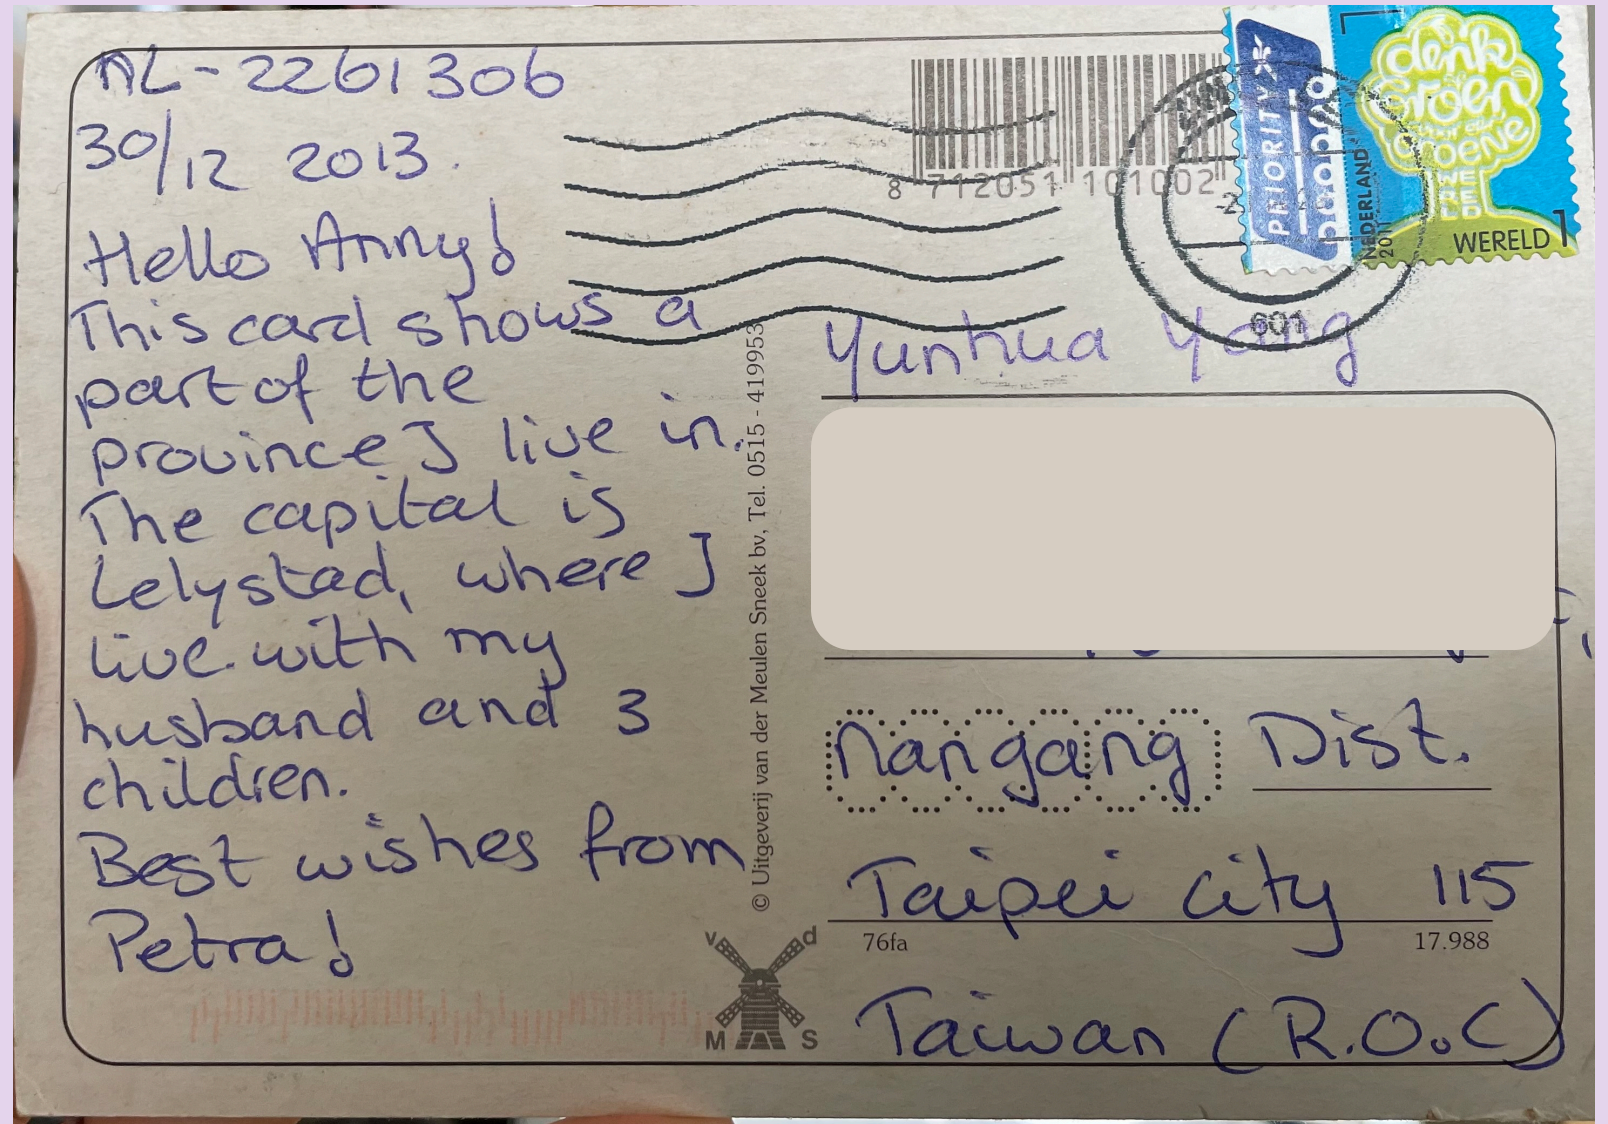 NL-2261306
30/12 2013.
Hello Anny!
This card shows a
part of the
province I live in.
The capital is
Lelystad, where I
live with my
husband and 3
children.
Best wishes from
Petra!
© Uitgeverij van der Meulen Sneek bv, Tel. 0515 - 419953
v d
M S
8 712051 101002
PRIORITY
NEDERLAND
denk
groen
voor een
groene
WERELD
WERELD 1
601
Yunhua Yang
Nangang Dist.
Taipei City 115
76fa 17.988
Taiwan (R.O.C)